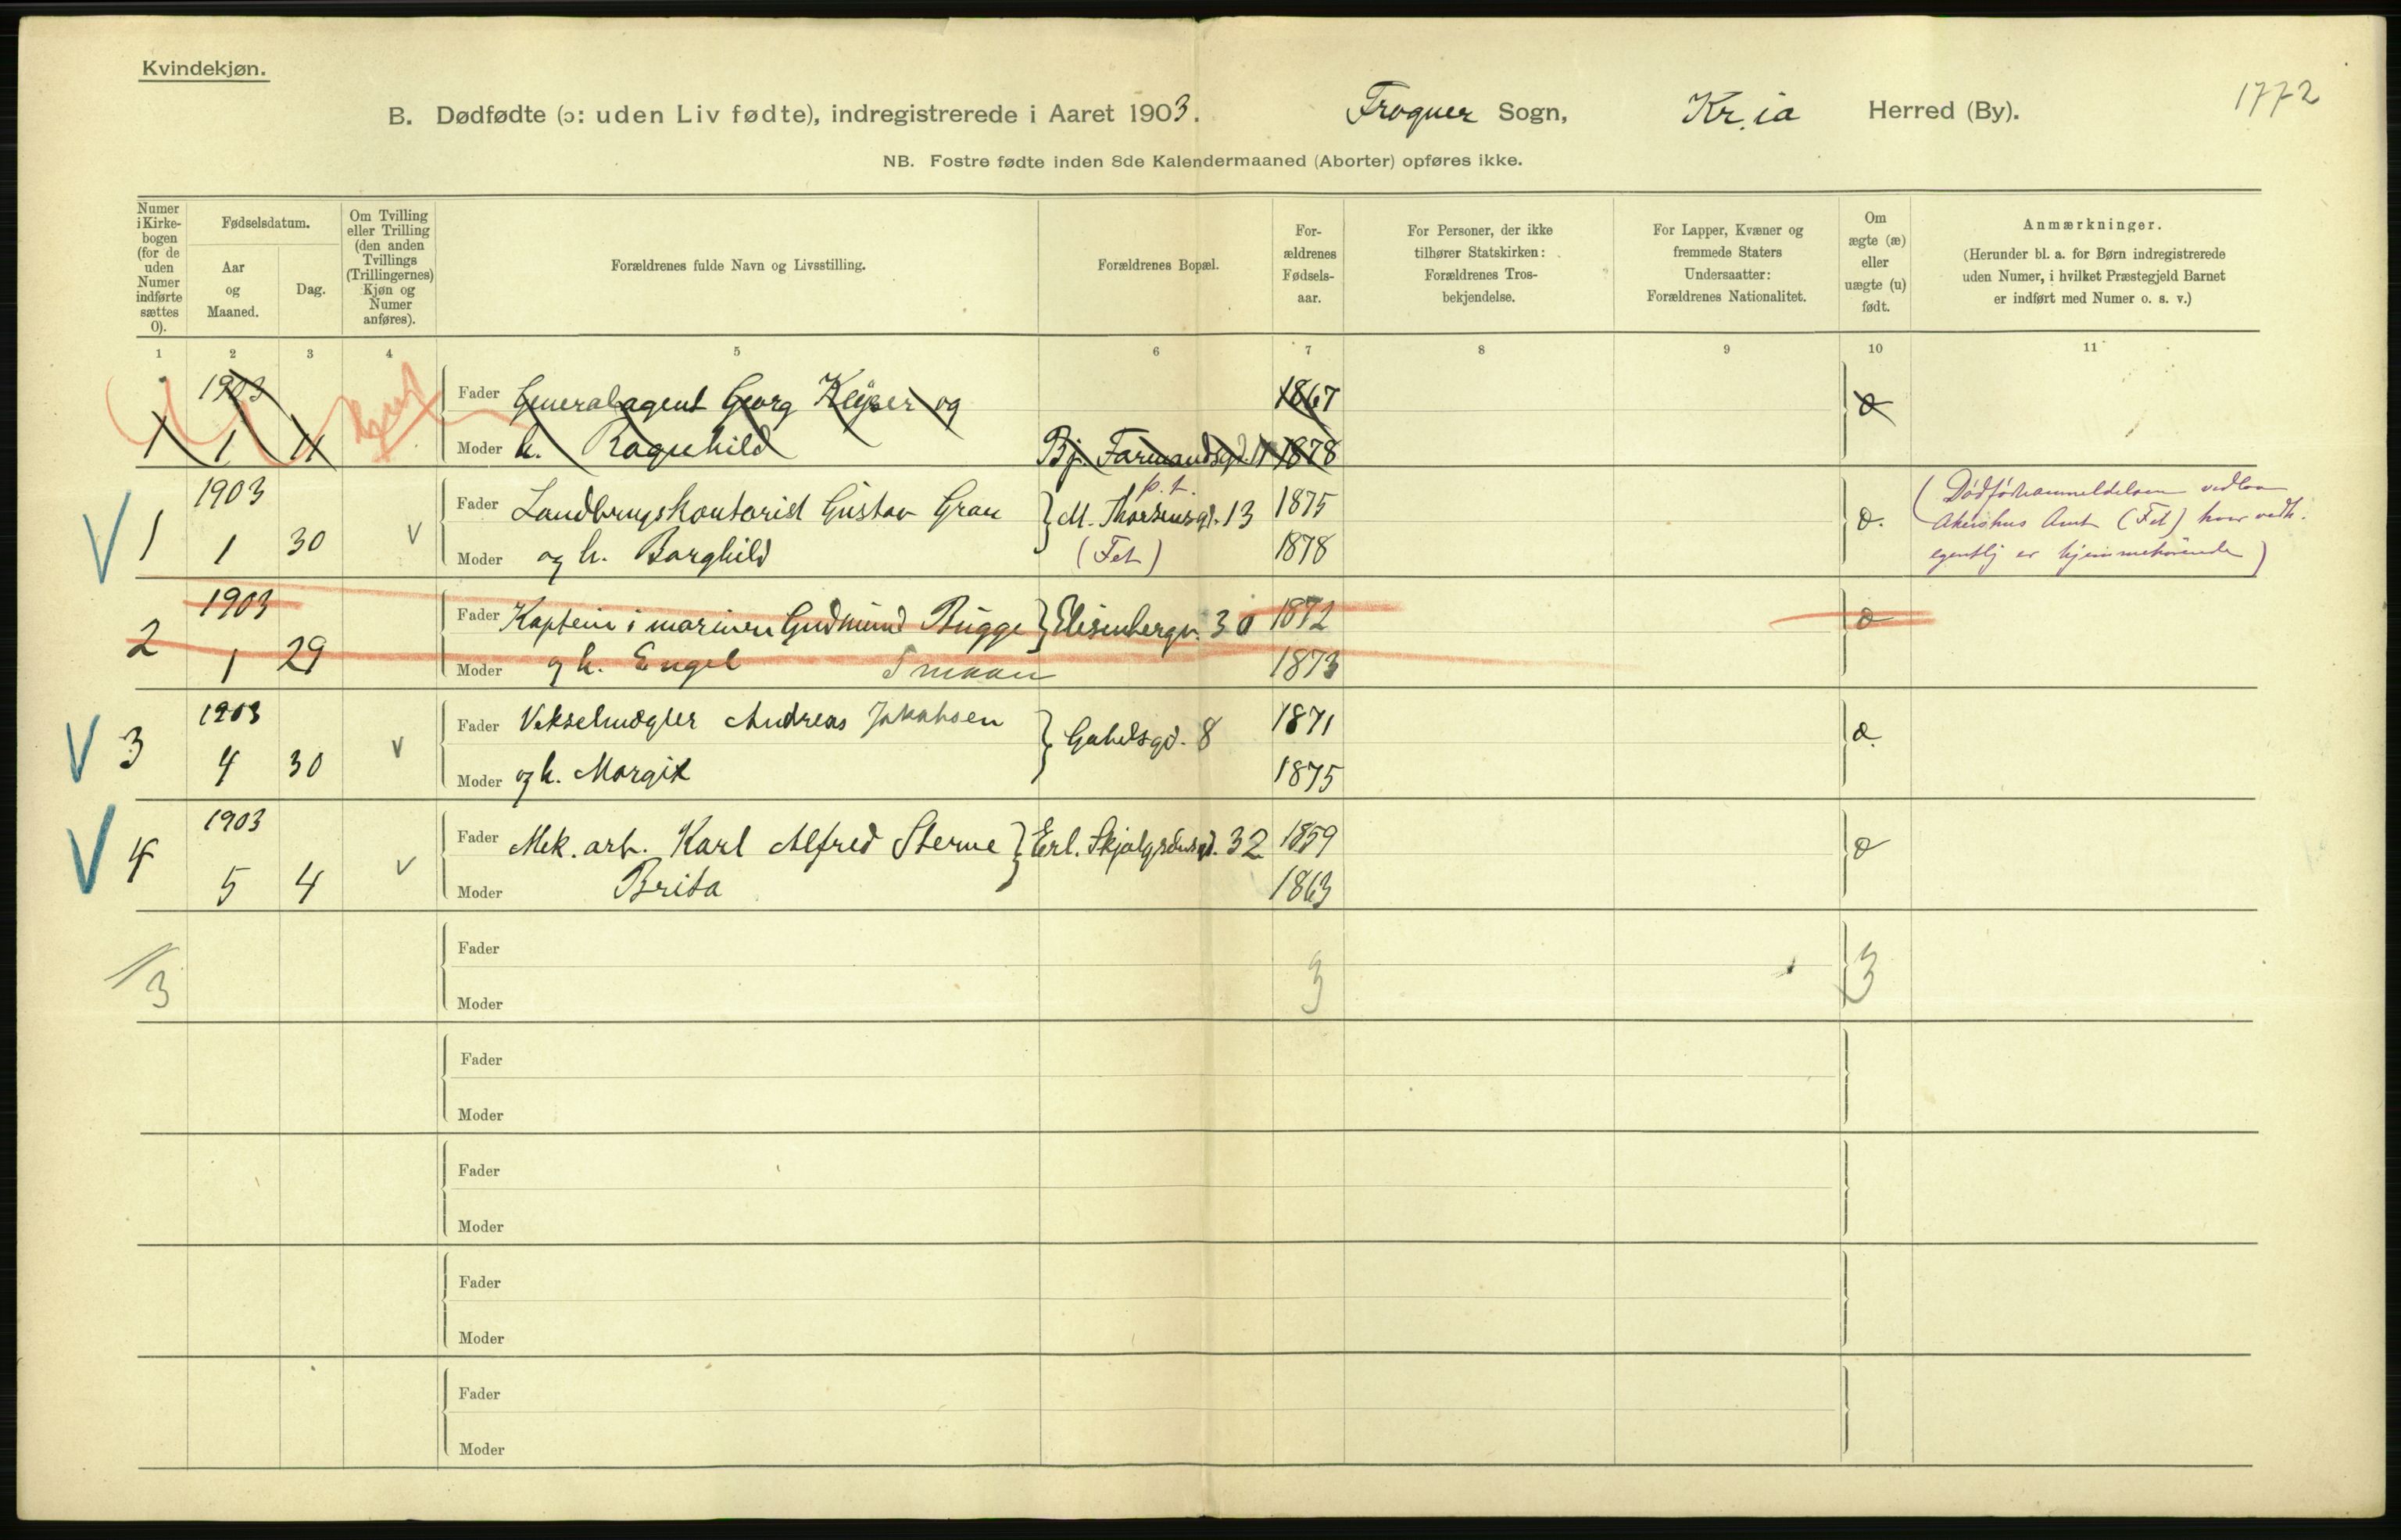 Kvindekjøn.
1772
B. Dødfødte (ɔ: uden Liv fødte), indregistrerede i Aaret 1903. Frogner Sogn, Kr.ia Herred (By).
NB. Fostre fødte inden 8de Kalendermaaned (Aborter) opføres ikke.
Numer i Kirke-bogen (for de uden Numer indførte sættes 0).
Fødselsdatum.
Aar og Maaned.
Dag.
Om Tvilling eller Trilling (den anden Tvillings (Trillingernes) Kjøn og Numer anføres).
Forældrenes fulde Navn og Livsstilling.
Forældrenes Bopæl.
For-ældrenes Fødsels-aar.
For Personer, der ikke tilhører Statskirken: Forældrenes Tros-bekjendelse.
For Lapper, Kvæner og fremmede Staters Undersaatter: Forældrenes Nationalitet.
Om ægte (æ) eller uægte (u) født.
Anmærkninger.
(Herunder bl. a. for Børn indregistrerede uden Numer, i hvilket Præstegjeld Barnet er indført med Numer o. s. v.)
1 2 3 4 5 6 7 8 9 10 11
1903 Fader Generalagent Georg Keyser og 1867 æ
1 1 11 Moder h. Ragnhild Bj. Farmandsgd. 1878
V 1903 Fader Landbrugskontorist Gustav Grau p.t. M. Thorsensgd. 13 1875 æ.
1 1 30 V Moder og h. Borghild (Fet) 1878
(Dødfødtanmeldelsen
Akershus Amt (Fet) hvor vedk.
egentlig er hjemmehørende)
1903 Fader Kaptein i marinen Gudmund Bügge Elisenbergv. 30 1872 æ
2 1 29 Moder og h. Engel 1873
V 1903 Fader Vekselmægler Andreas Jakobsen Gabelsgd. 8 1871 æ.
3 4 30 V Moder og h. Margit 1875
V 1903 Fader Mek. arb. Karl Alfred Sterne Erl. Skjalgsønsgd. 32 1859 æ
4 5 4 V Moder Brita 1863
Fader
3 Moder 3 3
Fader
Moder
Fader
Moder
Fader
Moder
Fader
Moder